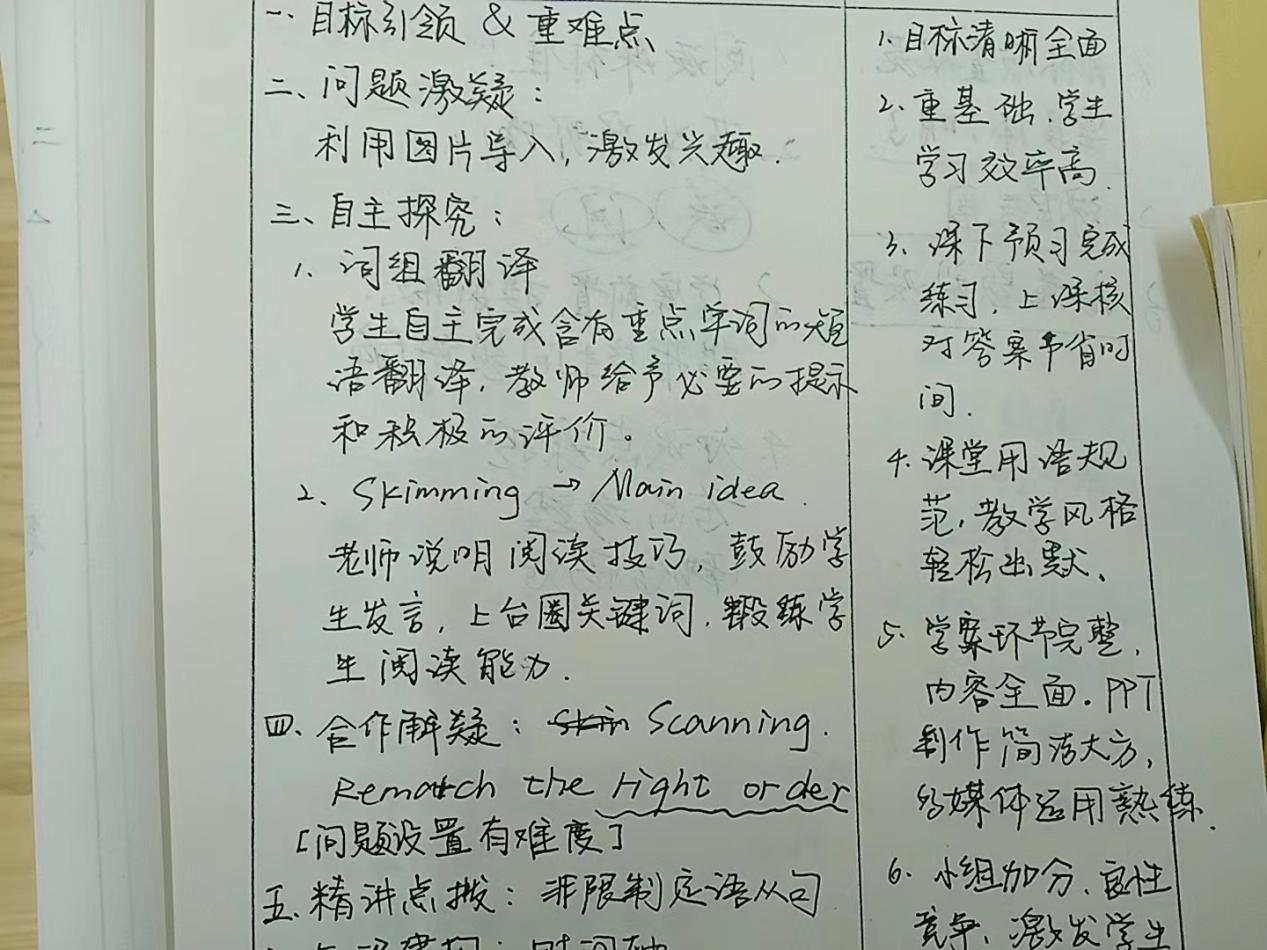 一、目标引领 & 重难点
二、问题激疑：
利用图片导入，激发兴趣.
三、自主探究：
1、词组翻译
学生自主完成含有重点单词的短
语翻译，教师给予必要的提示
和积极的评价。
2、Skimming → Main idea.
老师说明阅读技巧，鼓励学
生发言，上台圈关键词，锻练学
生阅读能力.
四、合作解疑：Scanning.
Rematch the right order
[问题设置有难度]
五、精讲点拨：非限制定语从句
时间轴
1. 目标清晰全面
2. 重基础，学生
学习效率高.
3. 课下预习完成
练习，上课核
对答案节省时
间.
4. 课堂用语规
范，教学风格
轻松幽默、
5. 学案环节完整，
内容全面。PPT
制作简洁大方，
多媒体运用熟练.
6. 小组加分、良性
竞争、激发学生